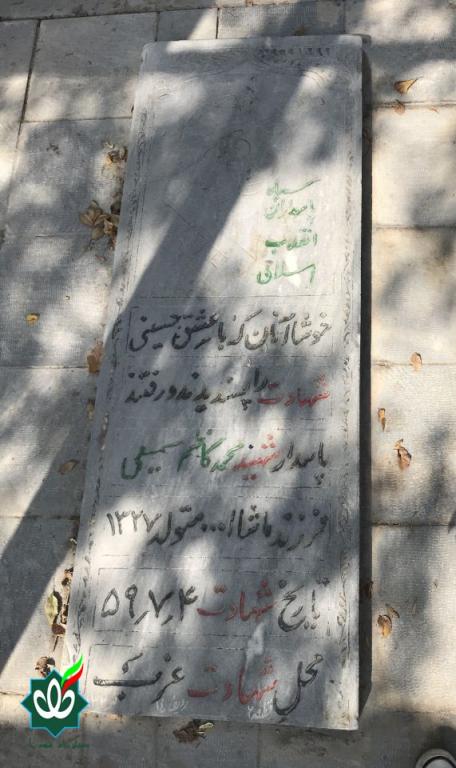 سپاه
پاسداران
انقلاب
اسلامی
خوشا آنان که با عشق حسینی
شهادت را پسندیدند و رفتند
پاسدار شهید محمد کاظم سمیعی
فرزند ماشاا... متولد ۱۳۳۷
تاریخ شهادت ۵۹٫۷٫۴
محل شهادت غرب